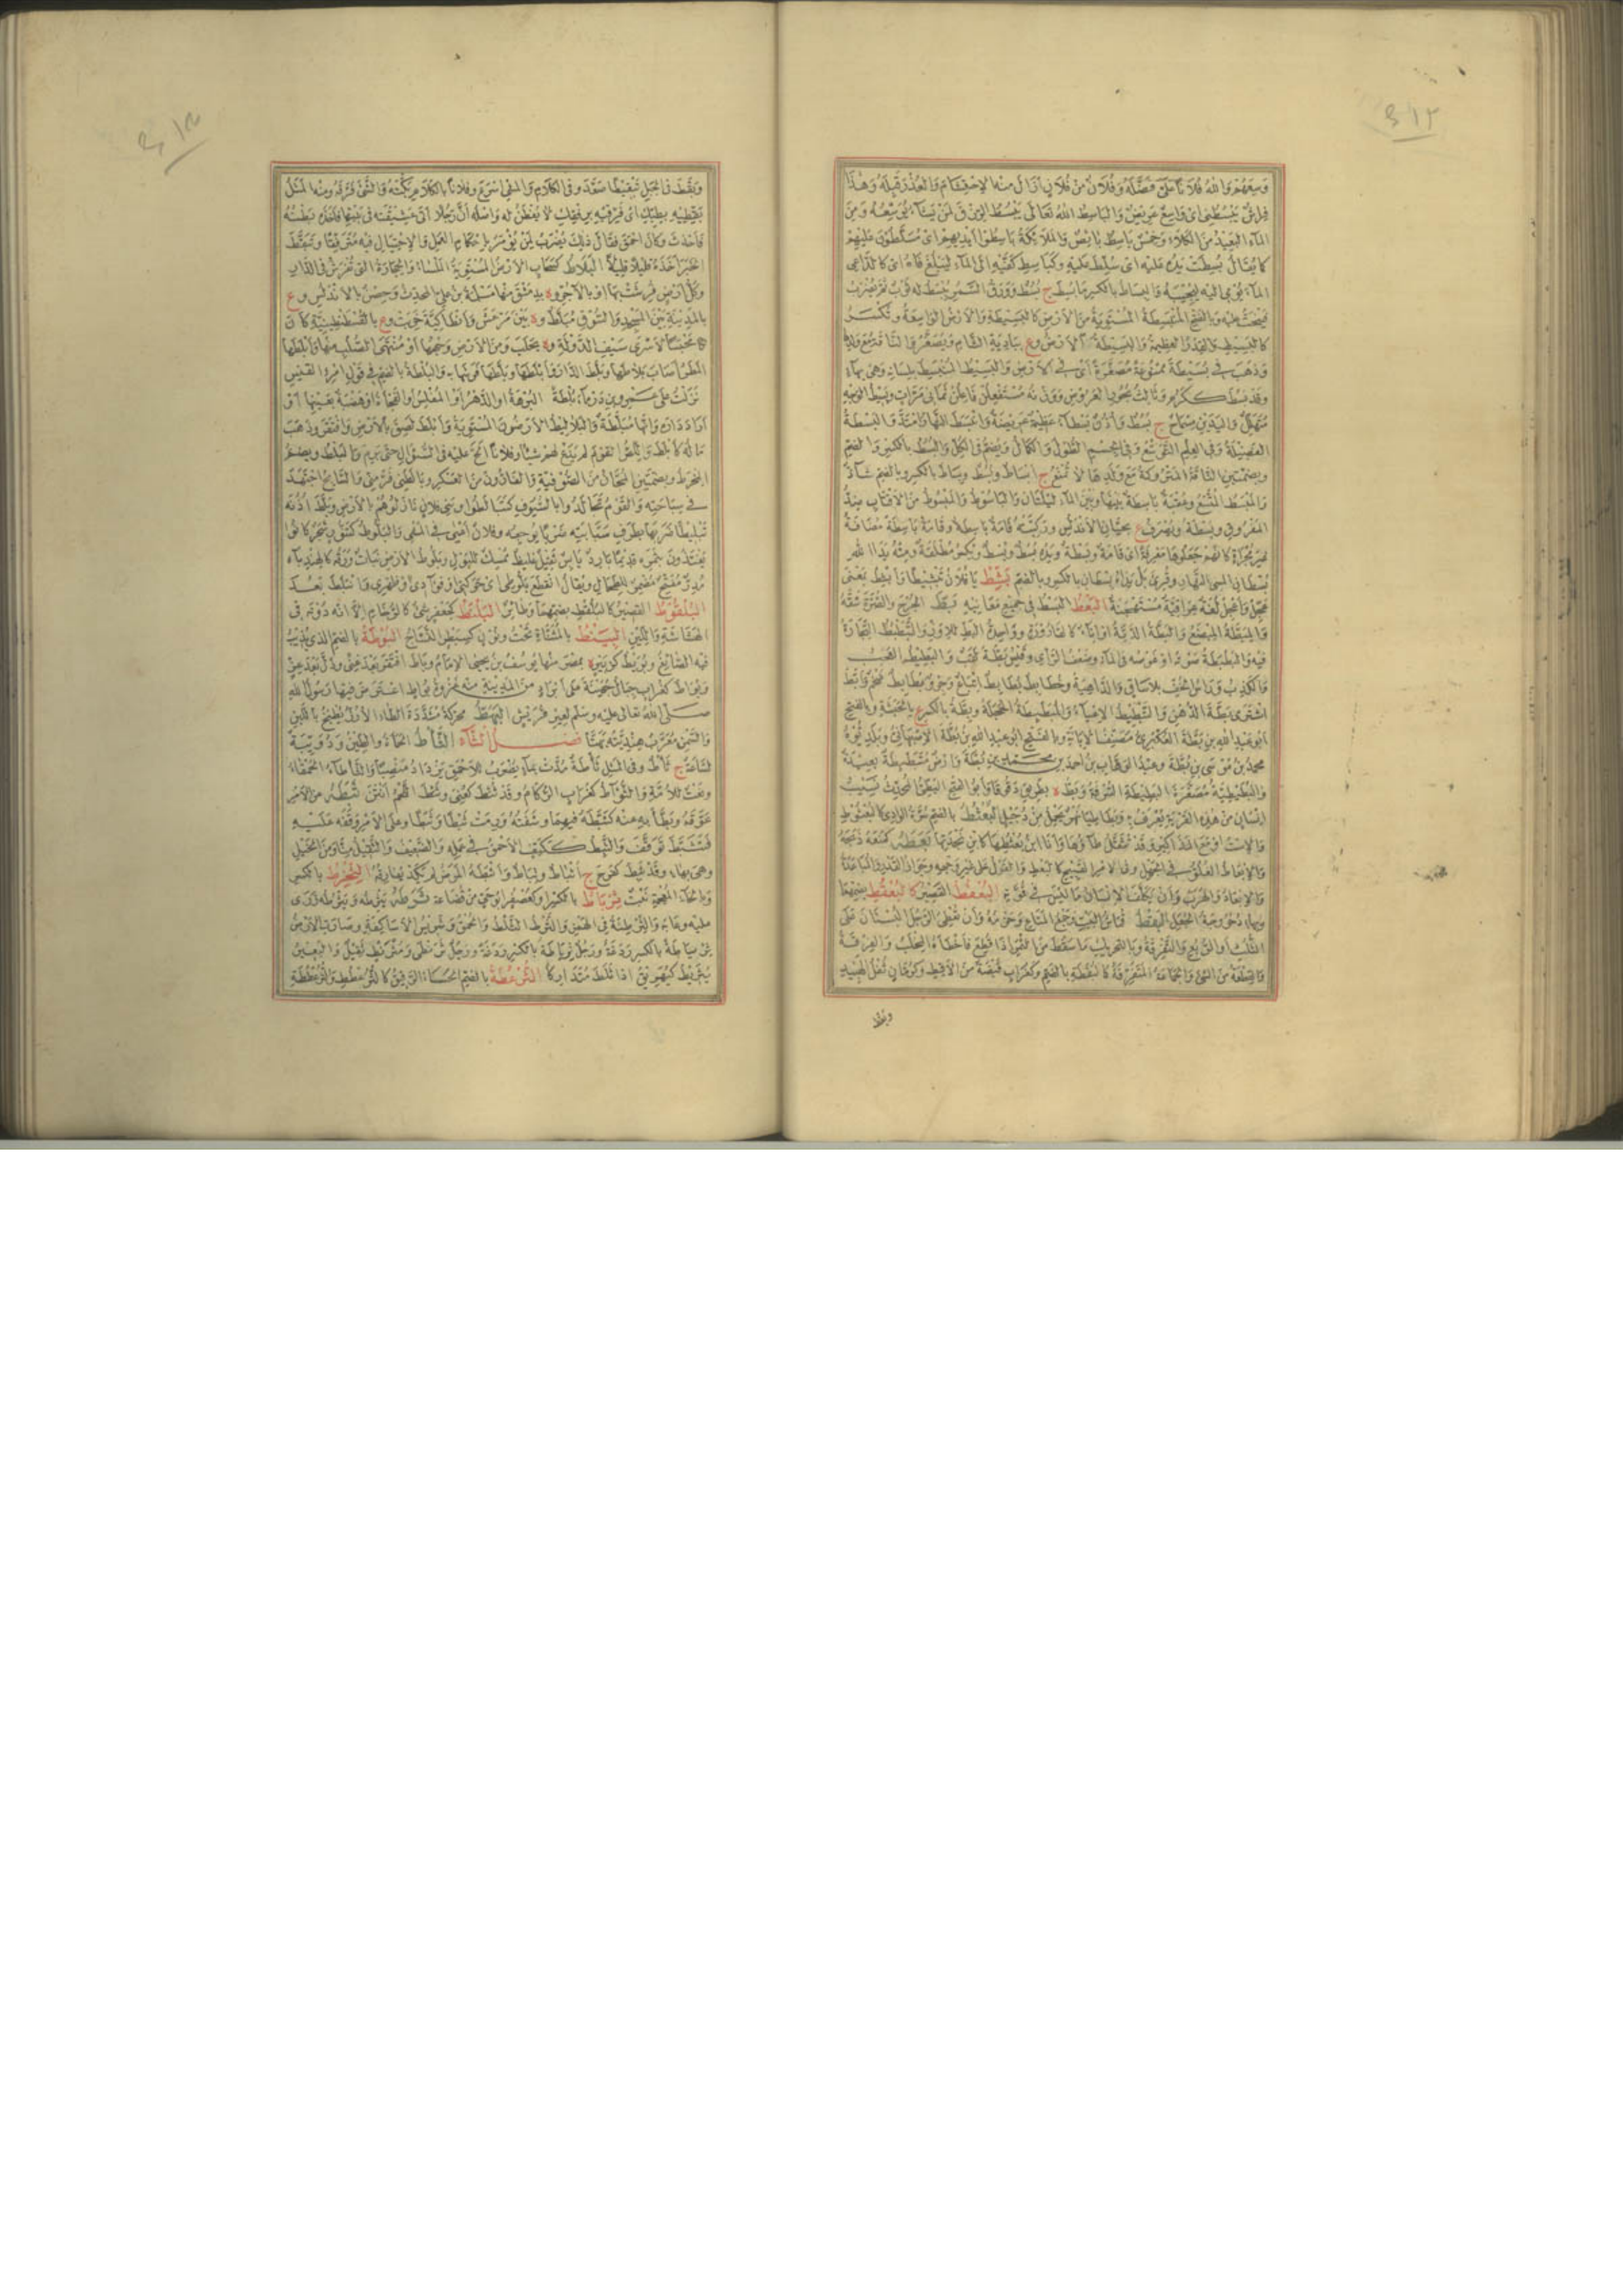 ٤١٢
وَسِعَهُمْ وَاللهُ فُلَانًا عَلَىَّ فَضَّلَهُ وَفُلَانٌ مِنْ فُلَانٍ اَزَالَ مِنْهُ الِاحْتِشَامَ وَالعُذْرَ قَبِلَهُ وَهٰذَا
فِرَاشٌ يَبْسُطُنِى اى وَاسِعٌ عَرِيضٌ وَالبَاسِطُ اللهُ تَعَالَى يَبْسُطُ الرِزْقَ لِمَنْ يَشَآءُ يُوَسِّعُهُ وَمِنَ
المَآءِ البَعِيدُ مِنَ الكَلَاءِ وَخِمْسٌ بَاسِطٌ بَائِصٌ وَالمَلَائِكَةُ بَاسِطُوا اَيْدِيهِمْ اى مُسَلَّطُونَ عَلَيْهِمْ
كما يُقَالُ بُسِطَتْ يَدُهُ عَلَيْهِ اى سُلِّطَ عَلَيْهِ وَكَبَاسِطِ كَفَّيْهِ اِلَى المَآءِ لِيَبْلُغَ فَاهُ اى كَالدَّاعِى
المَآءَ يُوْمِى اليه لِيُجِيبَهُ وَالبِسَاطُ بالكسر مَا بُسِطَ ج بُسُطٌ وَوَرَقُ السَّمُرِ يُبْسَطُ له ثَوْبٌ ثُمَّ يُضْرَبُ
فَيَنْحَتُّ عليه وبالفتح المُنْبَسِطَةُ المُسْتَوِيَةُ مِنَ الاَرْضِ كَالبَسِيطَةِ وَالاَرْضُ الوَاسِعَةُ وتُكْسَرُ
كالبَسِيطِ وَالقِدْرُ العَظِيمَةُ وَالبَسِيطَةُ الاَرْضُ وع بِبَادِيَةِ الشَّامِ وَيُصَغَّرُ
وَذَهَبَ فى بُسَيْطَةَ مَمْنُوعَةً مُصَغَّرَةً اَىْ فى الاَرْضِ وَالبَسِيطُ المُنْبَسِطُ بِلِسَانِهِ وَهِىَ بِهَآءٍ
وَقَدْ بَسُطَ كَكَرُمَ وَثَالِثُ بُحُورِ العَرُوضِ وَوَزْنُهُ مُسْتَفْعِلُنْ فَاعِلُنْ ثَمَانِىَ مَرَّاتٍ وَبَسِيطُ الوَجْهِ
مُتَهَلِّلٌ وَاليَدَيْنِ مِسْمَاحٌ ج بُسُطٌ وَاُذُنٌ بَسْطَآءُ عَظِيمَةٌ عَرِيضَةٌ وَانْبَسَطَ النَّهَارُ امْتَدَّ وَالبَسْطَةُ
الفَضِيلَةُ وَفى العِلْمِ التَّوَسُّعُ وَفى الجِسْمِ الطُّولُ وَالكَمَالُ وَيُضَمُّ فى الكُلِّ وَالبُسْطُ بالكسر وَالضم
وبضمتين النَّاقَةُ المَتْرُوكَةُ مَعَ وَلَدِهَا لَا تُمْنَعُ ج اَبْسَاطٌ وبُسْطٌ وبِسَاطٌ بالكسر وبالضم شَاذٌّ
وَالمَبْسَطُ المُتَّسَعُ وَعُقْبَةٌ بَاسِطَةٌ بَيْنَهَا وبَيْنَ المَآءِ لَيْلَتَانِ وَالبَاسُوطُ وَالمَبْسُوطُ مِنَ الاَقْتَابِ ضِدُّ
المَفْرُوقِ وَبَسْطَةُ ويُصْرَفُ ع بِجَيَّانِ الاَنْدَلُسِ وَرَكِيَّةٌ قَامَةٌ بَاسِطَةٌ وَقَامَةُ بَاسِطَةٍ مُضَافَةً
غَيْرَ مُجْرَاةٍ كَاَنَّهُمْ جَعَلُوهَا مَعْرِفَةً اى قَامَةٌ وَبَسْطَةٌ وَيَدُهُ بُسْطٌ وَبِسْطٌ وَيُكْسَرُ مُطْلَقَةٌ وَمِنْهُ يَدَا اللهِ
بُسْطَانِ لِمُسِىءِ النَّهَارِ وقُرِئَ بَلْ يَدَاهُ بِسْطَانِ بالكسر وبالضم بَشِّطْ يَا فُلَانُ تَبْشِيطًا وَاَبْشِطْ بِمَعْنَى
عَجِّلْ وَاَعْجِلْ لُغَةٌ عِرَاقِيَّةٌ مُسْتَهْجَنَةٌ البَصْطُ البَسْطُ فى جَمِيعِ مَعَانِيهِ بَطَّ الجُرْحَ وَالصُّرَّةَ شَقَّهُ
وَالمِبَطَّةُ المِبْضَعُ وَالبَطَّةُ الدَّبَّةُ اَوْ اِنَاءٌ كَالقَارُورَةِ وَوَاحِدَةُ البَطِّ لِلْاِوَزِّ وَالتَّبْطِيطُ التِّجَارَةُ
فِيهِ وَالبَطْبَطَةُ صَوْتُهُ اَوْ غَوْصُهُ فى المَآءِ وَضَعْفُ الرَّأْىِ وَالبَطِيطُ العَجَبُ
وَالكَذِبُ وَرَأْسُ الخُفِّ بِلَا سَاقٍ وَالدَّاهِيَةُ وَحُطَائِطٌ بُطَائِطٌ اِتْبَاعٌ وَجِرْوٌ بُطَائِطٌ ضَخْمٌ وَاَبَطَّ
اشْتَرَى بَطَّةَ الدُّهْنِ وَالتَّبْطِيطُ الاِعْيَاءُ وَالمُبَطْبِطَةُ الحَجَلَةُ وبِطَّةُ بالكسر ع بِالحَبَشَةِ وبالفتح
ابو عَبدِ اللهِ بن بَطَّةَ العُكْبَرِىُّ مُصَنِّفُ الاِبَانَةِ وبالضم ابو عبد الله بن بُطَّةَ الاَصْبَهَانِىُّ وَبَلَدِيُّوهُ
محمد بن مُوسَى بنِ بُطَّةَ وعَبْدُ الوَهَّابِ بن اَحمد بن محمد بن بُطَّةَ وَاَرْضٌ مُتَبَطْبِطَةٌ بَعِيدَةٌ
وَالبُطَيْطِيَّةُ مُصَغَّرَةَ البَطِيطَةِ السُّرْفَةُ وَبَطُّ ة بِطَرِيقِ دَقُوقَا وَابو الفتحِ البَطِّىُّ المُحَدِّثُ نَسِيبُ
اِنْسَانٍ مِنْ هٰذِهِ القَرْيَةِ يُعْرَفُ بِهِ وَبُطَاطِيَا نَهْرٌ يَحْمِلُ مِنْ دُجَيْلٍ البُعْثُطُ بالضم سُرَّةُ الوَادِى كالبُعْثُوطِ
وَالاِسْتُ اَوْ مَعَ المَذَاكِيرِ وَقَدْ تُثَقَّلُ طَآؤُهَا وَاَنَا ابْنُ بُعْثُطِهَا كَابْنِ بَجْدَتِهَا بَعَطَهُ كَمَنَعَهُ ذَبَحَهُ
وَالاِبْعَاطُ الغُلُوُّ فى الجَهْلِ وفى الامْرِ القَبِيحِ كالبَعْطِ وَالقَوْلُ عَلَى غَيْرِ وَجْهِهِ وَجَوَازُ القَدْرِ وَالمُبَاعَدَةُ
وَالاِبْعَادُ وَالهَرَبُ وَاَنْ تُكَلِّفَ الاِنْسَانَ مَا لَيْسَ فى قُوَّتِهِ البُعْقُطُ القَصِيرُ كَالبُعْقُوطِ بضمهما
وبِهَاءٍ دُحْرُوجَةُ الجُعَلِ البَقْطُ قُمَاشُ البَيْتِ وجَمْعُ المَتَاعِ وَحَزْمُهُ وَاَنْ تُعْطِىَ الرَّجُلَ البُسْتَانَ عَلَى
الثُّلُثِ اَوِ الرُّبُعِ وَالتَّفْرِقَةُ وبالتحريك مَا سَقَطَ مِنَ التَّمْرِ اِذَا قُطِعَ فَاَخْطَاَهُ المِخْلَبُ وَالفِرْقَةُ
وَالقِطْعَةُ مِنَ الشَّىءِ وَالجَمَاعَةُ المُتَفَرِّقَةُ كَالبُقْطَةِ بالضم وَكَغُرَابٍ قُبْضَةٌ مِنَ الاَقِطِ وَكَرُمَّانٍ ثُفْلُ الهَبِيدِ
وبقط
٤١٣
وبَقَّطَ فى الجَبَلِ تَبْقِيطًا صَعَّدَ وفى الكَلَامِ وَالمَشْىِ اَسْرَعَ وفُلَانًا بالكَلَامِ بَكَّتَهُ وَالشَّىءَ فَرَّقَهُ ومِنْهُ المَثَلُ
بَقِّطِيهِ بِطِبِّكِ اى فَرِّقِيهِ بِرِفْقِكِ لَا يُفْطَنُ لَهُ وَاَصْلُهُ اَنَّ رَجُلًا اَتَى عَشِيقَتَهُ فى بَيْتِهَا فَاَخَذَهُ بَطْنُهُ
فَاَحْدَثَ وَكَانَ اَحْمَقَ فَقَالَ ذٰلِكَ يُضْرَبُ لِمَنْ يُؤْمَرُ بِاِحْكَامِ العَمَلِ وَالاِحْتِيَالِ فِيهِ مُتَرَفِّقًا وَتَبَقَّطَ
الخَبَرَ اَخَذَهُ قَلِيلًا قَلِيلًا البَلَاطُ كَسَحَابٍ الاَرْضُ المُسْتَوِيَةُ المَلْسَاءُ وَالحِجَارَةُ التى تُفْرَشُ فى الدَّارِ
وَكُلُّ اَرْضٍ فُرِشَتْ بِهَا اَوْ بِالآجُرِّ وة بِدِمَشْقَ مِنْهَا مَسْلَمَةُ بنُ عَلِىٍّ المُحَدِّثُ وَحِصْنٌ بِالاَنْدَلُسِ وع
بالمَدِينَةِ بَيْنَ المَسْجِدِ وَالسُّوقِ مُبَلَّطٌ ود بَيْنَ مَرْعَشَ وَاَنْطَاكِيَّةَ خَرِبَتْ وع بالقُسْطَنْطِينِيَّةِ كَانَ
مَحْبِسًا لِاَسْرَى سَيْفِ الدَّوْلَةِ وة بِحَلَبَ وَمِنَ الاَرْضِ وَجْهُهَا اَوْ مُنْتَهَى الصُّلْبِ مِنْهَا وَاَبْلَطَهَا
المَطَرُ اَصَابَ بَلَاطَهَا وَبَلَطَ الدَّارَ وَاَبْلَطَهَا وَبَلَّطَهَا فَرَشَهَا بِهِ وَالبُلْطَةُ بالضم فى قَوْلِ امْرِئِ القَيْسِ
نَزَلْتُ عَلَى عَمْرِو بنِ دَرْمَآءَ بُلْطَةً البُرْهَةُ اَوِ الدَّهْرُ اَوِ المُفْلِسُ اَوِ الفَجْاَةُ اَوْ هَضْبَةٌ بِعَيْنِهَا اَوْ
اَرَادَ دَارَهُ وَاَنَّهَا مُبَلَّطَةٌ وَالبَلَالِيطُ الاَرَضُونَ المُسْتَوِيَةُ وَاَبْلَطَ لَصِقَ بِالاَرْضِ وَافْتَقَرَ وَذَهَبَ
مَالُهُ كَاُبْلِطَ وَاللِّصُّ القَوْمَ لَمْ يَدَعْ لَهُمْ شَيْئًا وفُلَانًا اَلَحَّ عَلَيْهِ فى السُّؤَالِ حَتَّى بَرِمَ وَالبَلْطُ ويُضَمُّ
المِخْرَطُ وبضمتين المُجَّانُ مِنَ الصُّوفِيَّةِ وَالفَارُّونَ مِنَ العَسْكَرِ وبَالَطَنِى فَرَّ مِنِّى وَالسَّابِحُ اجْتَهَدَ
فى سِبَاحَتِهِ وَالقَوْمُ تَجَالَدُوا بالسُّيُوفِ كَتَبَالَطُوا وبَنِى فُلَانٍ نَازَلُوهُمْ بِالاَرْضِ وبَلَّطَ اُذُنَهُ
تَبْلِيطًا ضَرَبَهَا بِطَرَفِ سَبَّابَتِهِ ضَرْبًا يُوجِعُهُ وفُلَانٌ اَعْيَى فى المَشْىِ وَالبَلُّوطُ كَتَنُّورٍ شَجَرٌ كَانُوا
يَغْتَذُونَ بِثَمَرِهِ قَدِيمًا بَارِدٌ يَابِسٌ ثَقِيلٌ غَلِيظٌ مُمْسِكٌ لِلْبَوْلِ وبَلُّوطُ الاَرْضِ نَبَاتٌ وَرَقُهُ كَالهِنْدِبَآءِ
مُدِرٌّ مُفَتِّحٌ مُضْمِرٌ لِلطِّحَالِ ويُقَالُ انْقَطَعَ بَلُّوطِى اى حَرَكَتِى اَوْ فُؤَادِى اَوْ ظَهْرِى وَانْبَلَطَ بَعُدَ
البُلْقُوطُ القَصِيرُ كَالبُلْقُطِ بضمهما وطَائِرٌ البَلَنْطُ كَجَعْفَرٍ شَىءٌ كَالرُّخَامِ اِلَّا اَنَّهُ دُونَهُ فى
الهَشَاشَةِ وَاللِّينِ البِيَنْطُ بالمُثَنَّاةِ تَحْتُ والنُّونِ كَسِبَطْرٍ النَّسَّاجُ البُوطَةُ بالضم الذى يُذِيبُ
فِيهِ الصَّائِغُ وبُوَيْطُ كَزُبَيْرٍ ة بِمِصْرَ مِنْهَا يُوسُفُ بنُ يَحْيَى الاِمَامُ وبَاطَ افْتَقَرَ بَعْدَ غِنًى وَذَلَّ بَعْدَ عِزٍّ
وَبُوَاطٌ كَغُرَابٍ جِبَالُ جُهَيْنَةَ عَلَى اَبْرَادٍ مِنَ المَدِينَةِ مِنْهُ غَزْوَةُ بُوَاطٍ اعْتَرَضَ فِيهَا رَسُولُ اللهِ
صَلَّى اللهُ تعالى عليه وسلم لِعِيرِ قُرَيْشٍ البَهَطُّ مُحَرَّكَةً مُشَدَّدَةَ الطَّاءِ الاَرُزُّ يُطْبَخُ بِاللَّبَنِ
وَالسَّمْنِ مُعَرَّبٌ هِنْدِيَّتُهُ بَهَتَّا فَصْلُ الثَّاءِ الثَّأْطُ الحَمْاَةُ والطِّينُ ودُوَيْبَّةٌ
لَسَّاعَةٌ ج ثَأْطٌ وفى المَثَلِ ثَأْطَةٌ مُدَّتْ بِمَآءٍ يُضْرَبُ لِلْاَحْمَقِ يَزْدَادُ مَنْصِبًا وَالثَّأْطَآءُ الحَمْقَاءُ
ونَعْتٌ لِلْاَمَةِ وَالثُّؤَاطُ كَغُرَابٍ الزُّكَامُ وَقَدْ ثُئِطَ كَعُنِىَ وثَئِطَ اللَّحْمُ اَنْتَنَ ثَبَطَهُ عَنِ الاَمْرِ
عَوَّقَهُ وبَطَّأَ بِهِ عَنْهُ كَثَبَّطَهُ فِيهِمَا وشَفَتُهُ وَرِمَتْ ثَبْطًا وثَبَطًا وعَلَى الاَمْرِ وَقَفَهُ عَلَيْهِ
فَتَثَبَّطَ تَوَقَّفَ وَالثَّبِطُ كَكَتِفٍ الاَحْمَقُ فى عَمَلِهِ وَالضَّعِيفُ وَالثَّقِيلُ مِنَّا ومِنَ الخَيْلِ
وهِىَ بِهَاءٍ وقَدْ ثَبِطَ كَفَرِحَ ج اَثْبَاطٌ وثِبَاطٌ وَاَثْبَطَهُ المَرَضُ لَمْ يَكَدْ يُفَارِقُهُ الثِّخْرِطُ بالكسر
وَبِالخَاءِ المُعْجَمَةِ نَبْتٌ ثِرْبَاطٌ بالكسر وكَعُصْفُرٍ اَبُو حَىٍّ مِنْ قُضَاعَةَ ثَرَطَهُ يَثْرِطُهُ وَيَثْرُطُهُ زَرَى
عَلَيْهِ وعَابَهُ وَالثِّرْطِئَةُ فى الهَمْزِ وَالثَّرْطُ الثَّلْطُ وَالحُمْقُ وَشَرِيسُ الاَسَاكِفَةِ وصَارَتِ الاَرْضُ
ثِرْيَاطَةً بالكسر رَدْغَةً ورَجُلٌ ثُرَنْطًى ومُثْرَنْطٍ ثَقِيلٌ وَالبَعِيرُ
يُثَرْبِطُ كَيُهَرِيقُ اِذَا ثَلَطَ مُتَدَارِكًا الثُّرْعُطَةُ بالضم الحَسَاءُ الرَّقِيقُ كَالثُّرَعْطُطِ وَالثُّرُعْطُطَةِ